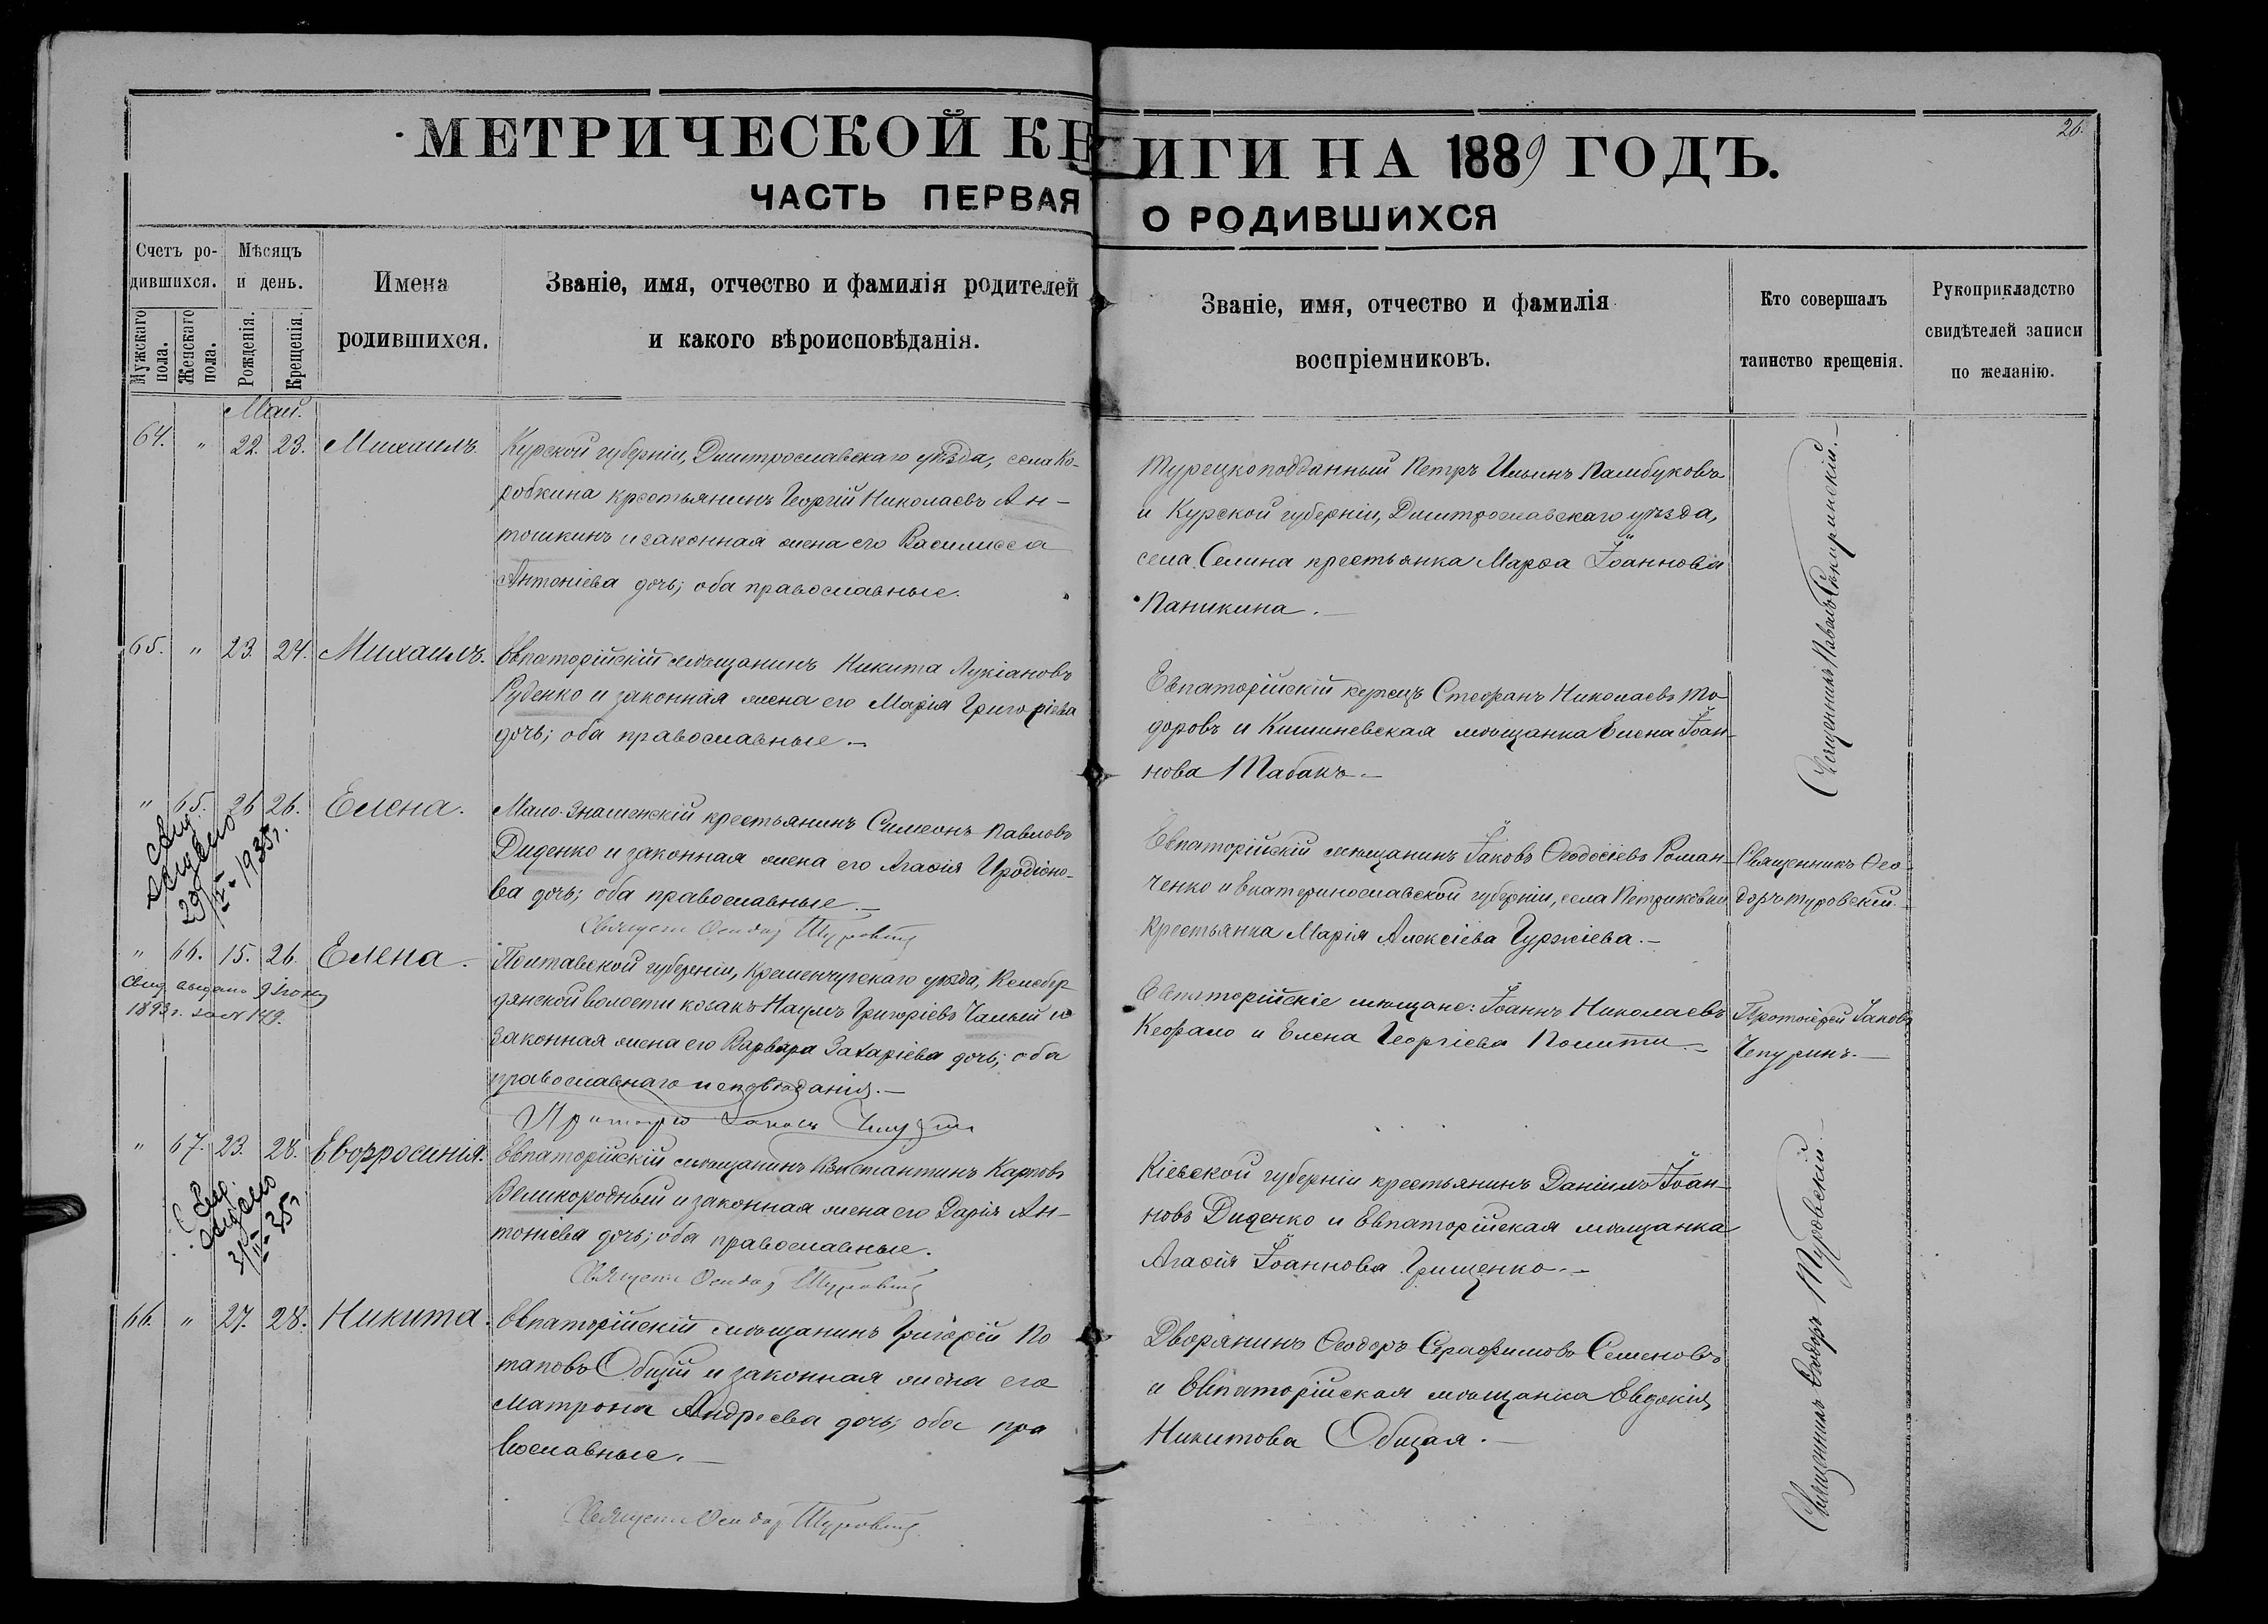 МЕТРИЧЕСКОЙ КНИГИ НА 1889 ГОДЪ.
26.
ЧАСТЬ ПЕРВАЯ О РОДИВШИХСЯ
Счетъ родившихся.
Мужскаго пола.
Женскаго пола.
Мѣсяцъ и день.
Рожденія.
Крещенія.
Имена
родившихся.
Званіе, имя, отчество и фамилія родителей
и какого вѣроисповѣданія.
Званіе, имя, отчество и фамилія
воспріемниковъ.
Кто совершалъ
таинство крещенія.
Рукоприкладство
свидѣтелей записи
по желанію.
Май.
64. " 22. 23. Михаилъ.
Курской губерніи, Дмитрославскаго уѣзда, села Ко-
робкина крестьянинъ Георгій Николаевъ Ан-
тошкинъ и законная жена его Василисса
Антоніева дочь; оба православные.
Турецкоподданный Петръ Ильинъ Памбуковъ
и Курской губерніи, Дмитрославскаго уѣзда,
села Селина крестьянка Марѳа Іоаннова
Паникина.
Священникъ Павелъ
65. " 23. 24. Михаилъ.
Евпаторійскій мѣщанинъ Никита Лукіановъ
Руденко и законная жена его Марія Григоріева
дочь; оба православные.
Евпаторійскій купецъ Стефанъ Николаевъ То-
доровъ и Кишиневская мѣщанка Елена Іоан-
нова Табакъ.
" 65. 26 26. Елена.
Свид.
выдано
29/IV-1935г.
Мало-Знаменскій крестьянинъ Симеонъ Павловъ
Диденко и законная жена его Агаѳія Иродіоно-
ва дочь; оба православные.
Евпаторійскій мѣщанинъ Іаковъ Ѳеодосіевъ Роман-
ченко и Екатеринославской губерніи, села Петриковки
крестьянка Марія Алексіева Гуржіева.
Священникъ Ѳео-
доръ Туровскій.
" 66. 15. 26. Елена.
Свид. выдано 9 Іюня
1893г. за № 149.
Полтавской губерніи, Кременчугскаго уѣзда, Келебер-
дянской волости козакъ Наумъ Григоріевъ Чалый и
законная жена его Варвара Захаріева дочь; оба
православнаго исповѣданія.
Евпаторійскіе мѣщане: Іоаннъ Николаевъ
Кефало и Елена Георгіева Полити.
Протоіерей Іаковъ
Чепуринъ.
" 67. 23. 28. Евфросинія.
Свид.
выдано
Евпаторійскій мѣщанинъ Константинъ Карповъ
Великородный и законная жена его Дарія Ан-
тоніева дочь; оба православные.
Кіевской губерніи крестьянинъ Даніилъ Іоан-
новъ Диденко и Евпаторійская мѣщанка
Агаѳія Іоаннова Грищенко.
Священникъ Ѳеодоръ Туровскій.
66. " 27. 28. Никита.
Евпаторійскій мѣщанинъ Григорій По
таповъ Общій и законная жена его
Матрона Андреева дочь; оба пра
вославные.
Дворянинъ Ѳеодоръ Серафимовъ Семеновъ
и Евпаторійская мѣщанка Евдокія
Никитова Общая.